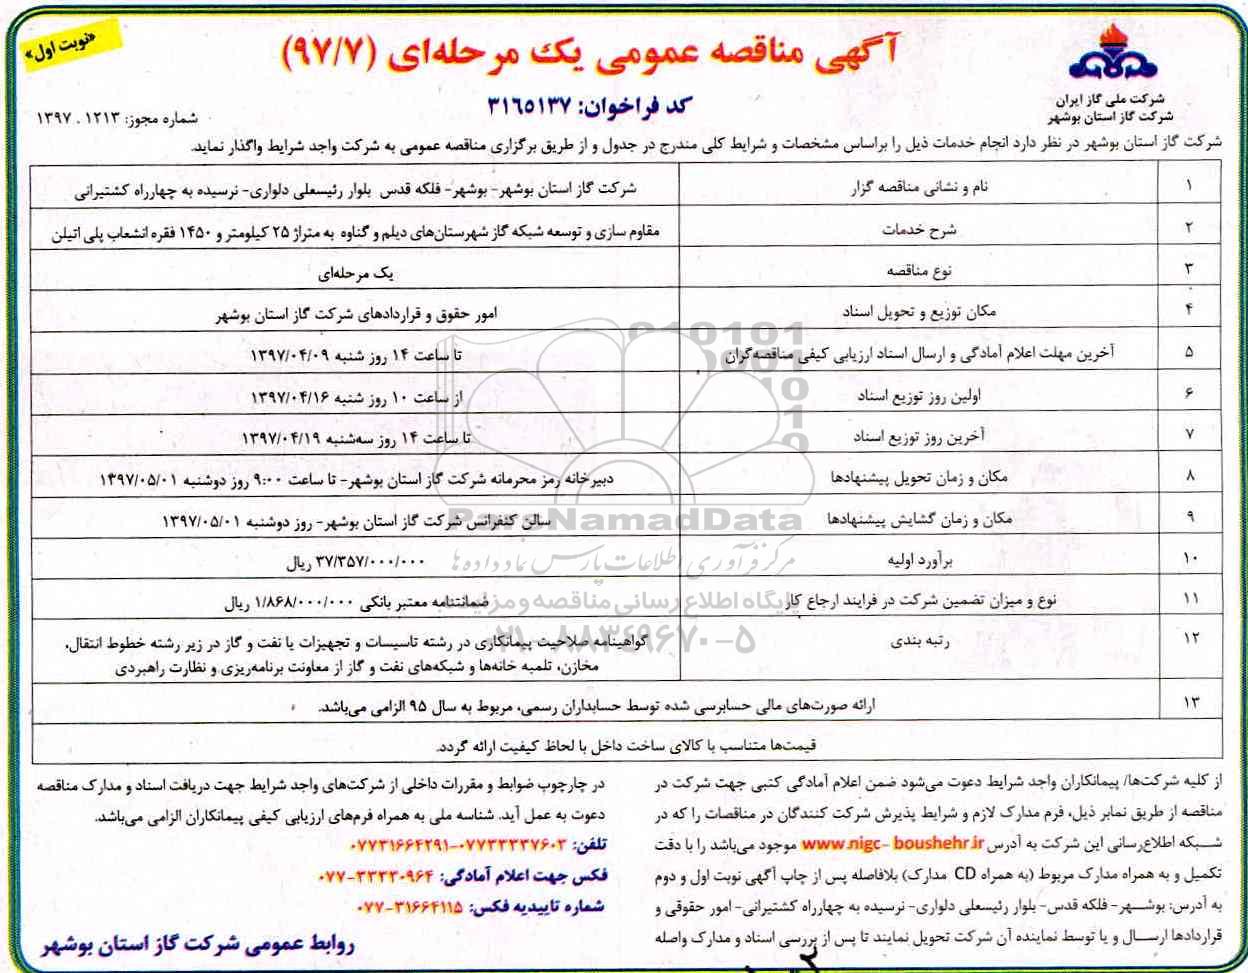 «نوبت اول»
آگهی مناقصه عمومی یک مرحله‌ای (۹۷/۷)
شرکت ملی گاز ایران
شرکت گاز استان بوشهر
کد فراخوان: ۳۱۶۵۱۳۷
شماره مجوز: ۱۲۱۳ . ۱۳۹۷
شرکت گاز استان بوشهر در نظر دارد انجام خدمات ذیل را براساس مشخصات و شرایط کلی مندرج در جدول و از طریق برگزاری مناقصه عمومی به شرکت واجد شرایط واگذار نماید.
۱ نام و نشانی مناقصه گزار شرکت گاز استان بوشهر- بوشهر- فلکه قدس بلوار رئیسعلی دلواری- نرسیده به چهارراه کشتیرانی
۲ شرح خدمات مقاوم سازی و توسعه شبکه گاز شهرستان‌های دیلم و گناوه به متراژ ۲۵ کیلومتر و ۱۴۵۰ فقره انشعاب پلی اتیلن
۳ نوع مناقصه یک مرحله‌ای
۴ مکان توزیع و تحویل اسناد امور حقوق و قراردادهای شرکت گاز استان بوشهر
۵ آخرین مهلت اعلام آمادگی و ارسال اسناد ارزیابی کیفی مناقصه‌گران تا ساعت ۱۴ روز شنبه ۱۳۹۷/۰۴/۰۹
۶ اولین روز توزیع اسناد از ساعت ۱۰ روز شنبه ۱۳۹۷/۰۴/۱۶
۷ آخرین روز توزیع اسناد تا ساعت ۱۴ روز سه‌شنبه ۱۳۹۷/۰۴/۱۹
۸ مکان و زمان تحویل پیشنهادها دبیرخانه رمز محرمانه شرکت گاز استان بوشهر- تا ساعت ۹:۰۰ روز دوشنبه ۱۳۹۷/۰۵/۰۱
۹ مکان و زمان گشایش پیشنهادها سالن کنفرانس شرکت گاز استان بوشهر- روز دوشنبه ۱۳۹۷/۰۵/۰۱
۱۰ برآورد اولیه ۳۷/۳۵۷/۰۰۰/۰۰۰ ریال
۱۱ نوع و میزان تضمین شرکت در فرایند ارجاع کار ضمانتنامه معتبر بانکی ۱/۸۶۸/۰۰۰/۰۰۰ ریال
۱۲ رتبه بندی گواهینامه صلاحیت پیمانکاری در رشته تاسیسات و تجهیزات یا نفت و گاز در زیر رشته خطوط انتقال،
مخازن، تلمبه خانه‌ها و شبکه‌های نفت و گاز از معاونت برنامه‌ریزی و نظارت راهبردی
۱۳ ارائه صورت‌های مالی حسابرسی شده توسط حسابداران رسمی، مربوط به سال ۹۵ الزامی می‌باشد.
قیمت‌ها متناسب با کالای ساخت داخل با لحاظ کیفیت ارائه گردد.
از کلیه شرکت‌ها/ پیمانکاران واجد شرایط دعوت می‌شود ضمن اعلام آمادگی کتبی جهت شرکت در
مناقصه از طریق نمابر ذیل، فرم مدارک لازم و شرایط پذیرش شرکت کنندگان در مناقصات را که در
شبکه اطلاع‌رسانی این شرکت به آدرس www.nigc- boushehr.ir موجود می‌باشد را با دقت
تکمیل و به همراه مدارک مربوط (به همراه CD مدارک) بلافاصله پس از چاپ آگهی نوبت اول و دوم
به آدرس: بوشهر- فلکه قدس- بلوار رئیسعلی دلواری- نرسیده به چهارراه کشتیرانی- امور حقوقی و
قراردادها ارسال و یا توسط نماینده آن شرکت تحویل نمایند تا پس از بررسی اسناد و مدارک واصله
در چارچوب ضوابط و مقررات داخلی از شرکت‌های واجد شرایط جهت دریافت اسناد و مدارک مناقصه
دعوت به عمل آید. شناسه ملی به همراه فرم‌های ارزیابی کیفی پیمانکاران الزامی می‌باشد.
تلفن: ۰۷۷۳۳۳۳۷۶۰۳-۰۷۷۳۱۶۶۴۲۹۱
فکس جهت اعلام آمادگی: ۳۳۳۳۰۹۶۴-۰۷۷
شماره تاییدیه فکس: ۳۱۶۶۴۱۱۵-۰۷۷
روابط عمومی شرکت گاز استان بوشهر
ParsNamadData
مرکز فرآوری اطلاعات پارس نماد داده ها
پایگاه اطلاع رسانی مناقصه و مزایده
۰۲۱-۸۸۳۴۹۶۷۰-۵